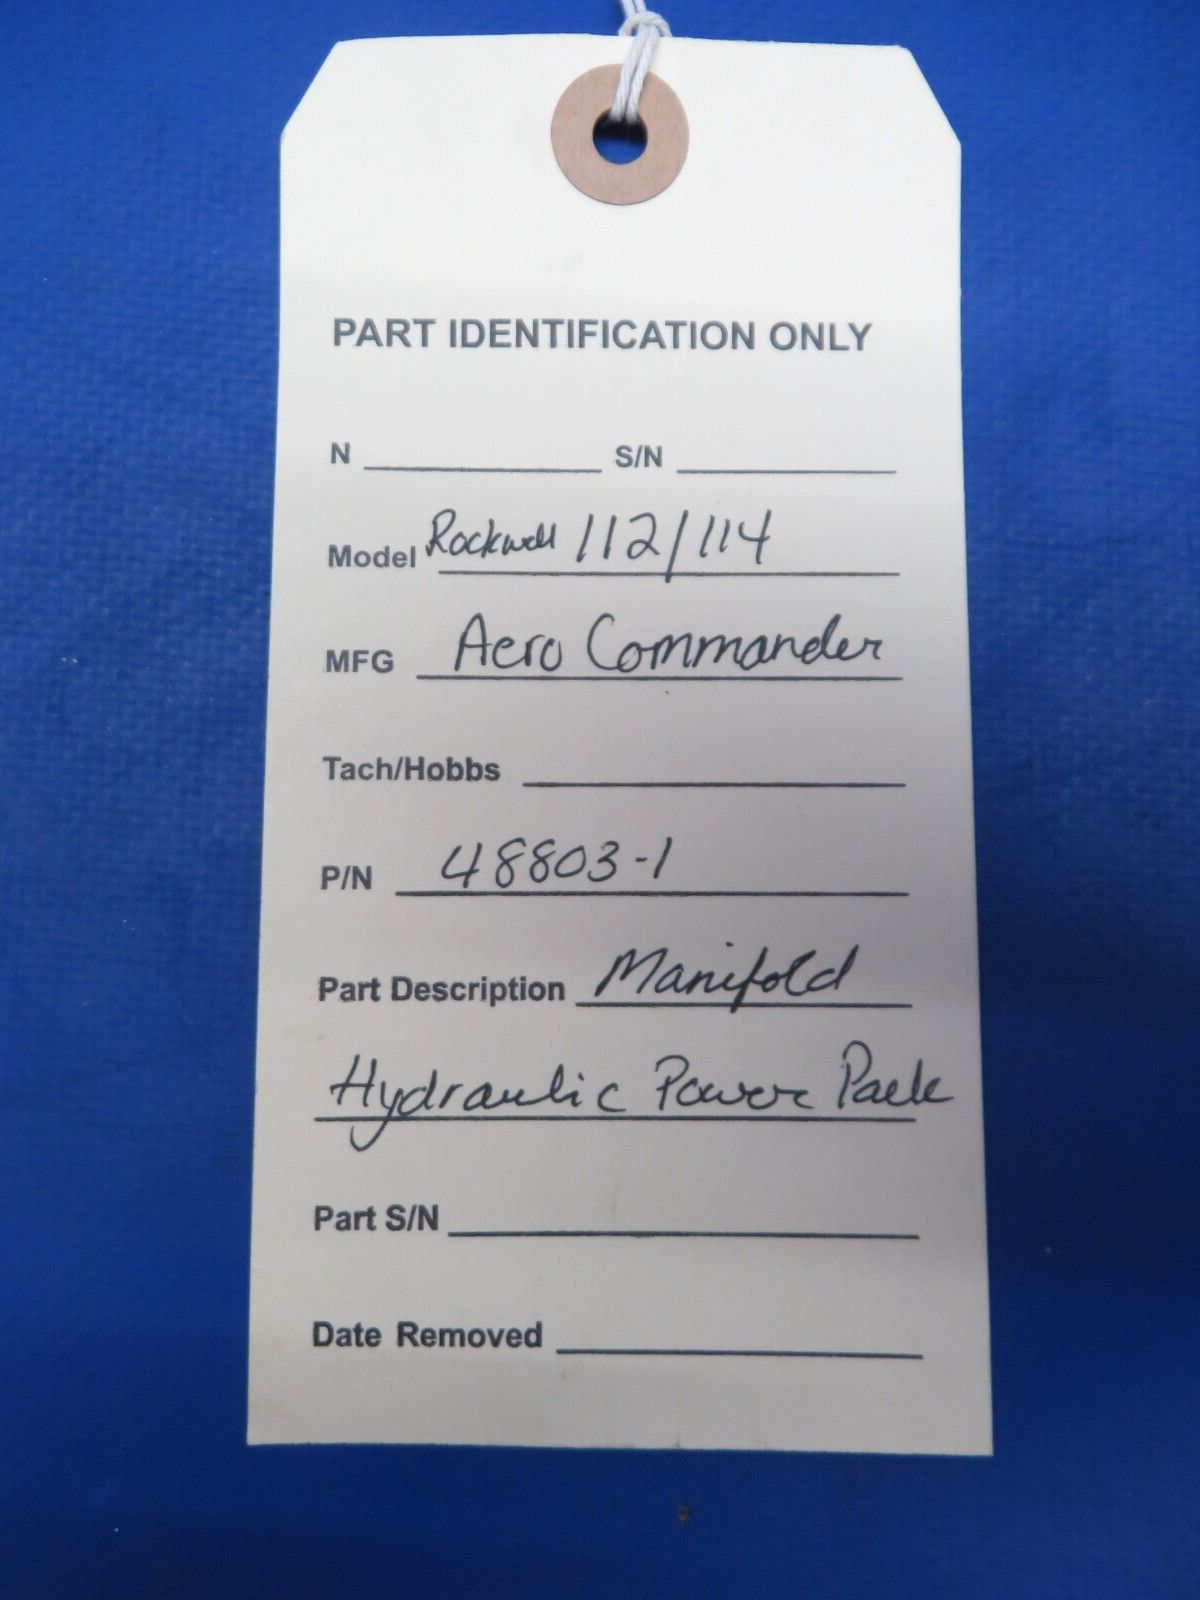 PART IDENTIFICATION ONLY
N S/N
Model Rockwell 112/114
MFG Aero Commander
Tach/Hobbs
P/N 48803-1
Part Description Manifold
Hydraulic Power Pack
Part S/N
Date Removed